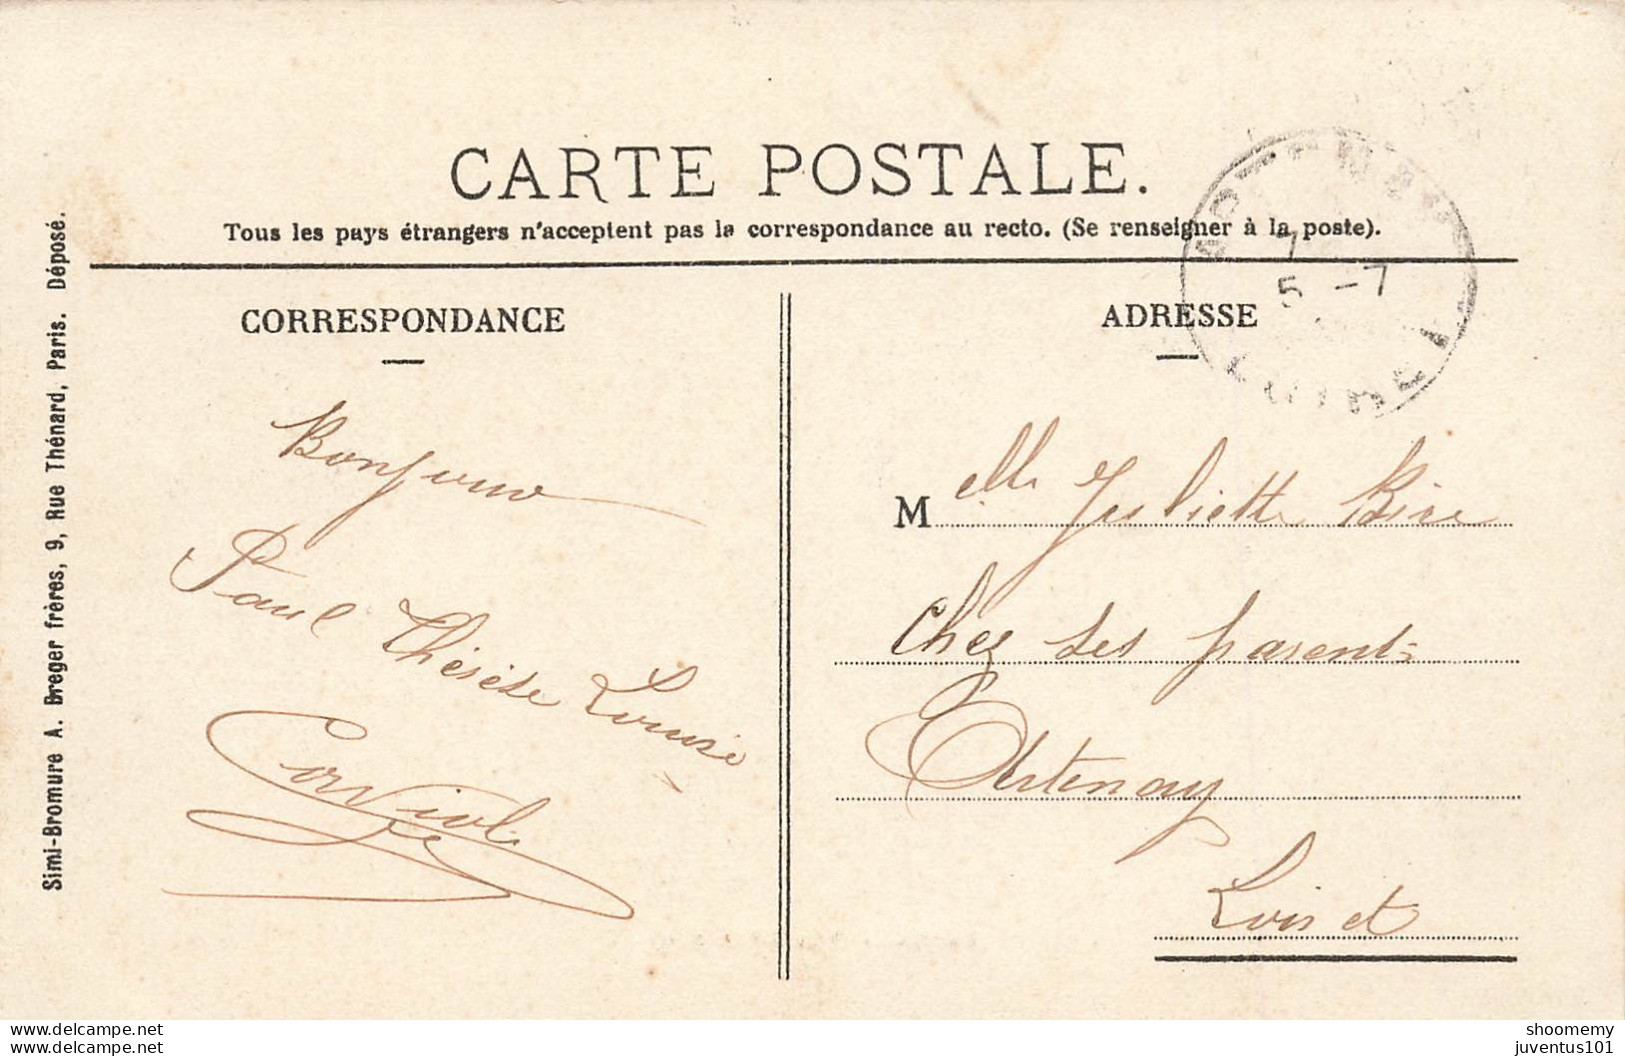 CARTE POSTALE.
Tous les pays étrangers n'acceptent pas la correspondance au recto. (Se renseigner à la poste).
Simi-Bromure A. Breger frères, 9, Rue Thénard, Paris. Déposé.
CORRESPONDANCE
Bonjour
Paul Thérèse Louise
ADRESSE
7
5 -7
LOIRET
M elle Juliette Bire
Chez ses parents
Artenay
Loiret
www.delcampe.net
www.delcampe.net
shoomemy
juventus101